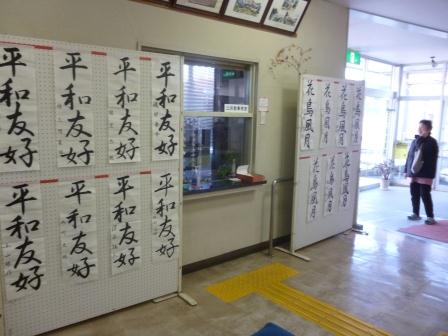 平和友好
平和友好
平和友好
平和友好
平和友好
平和友好
平和友好
平和友好
花鳥風月
花鳥風月
花鳥風月
花鳥風月
花鳥風月
花鳥風月
花鳥風月